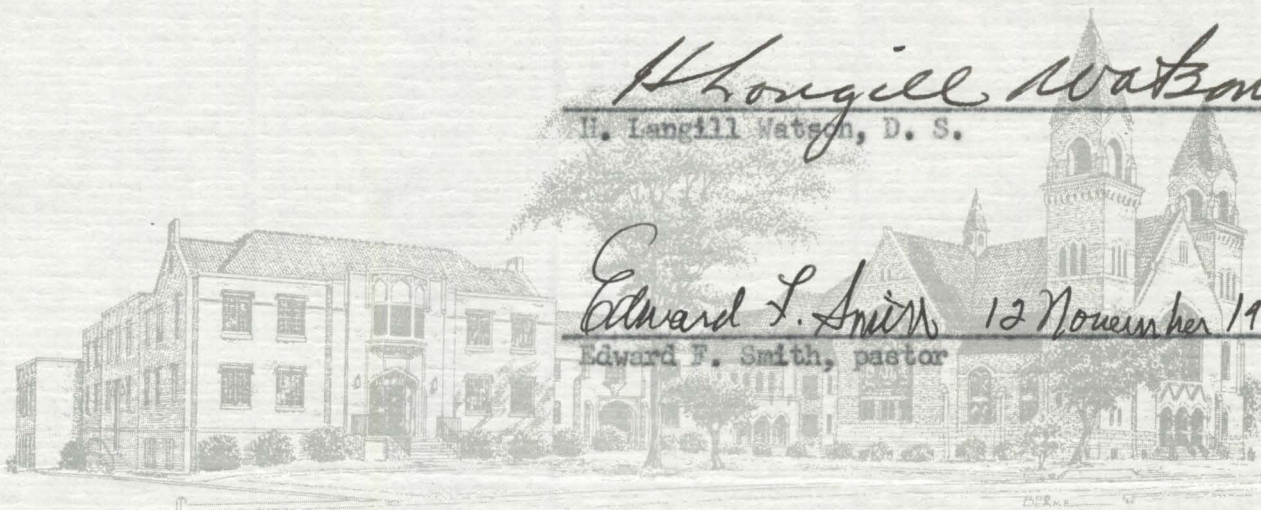 H Langill Watson
H. Langill Watson, D. S.
Edward F. Smith 12 November 19
Edward F. Smith, pastor